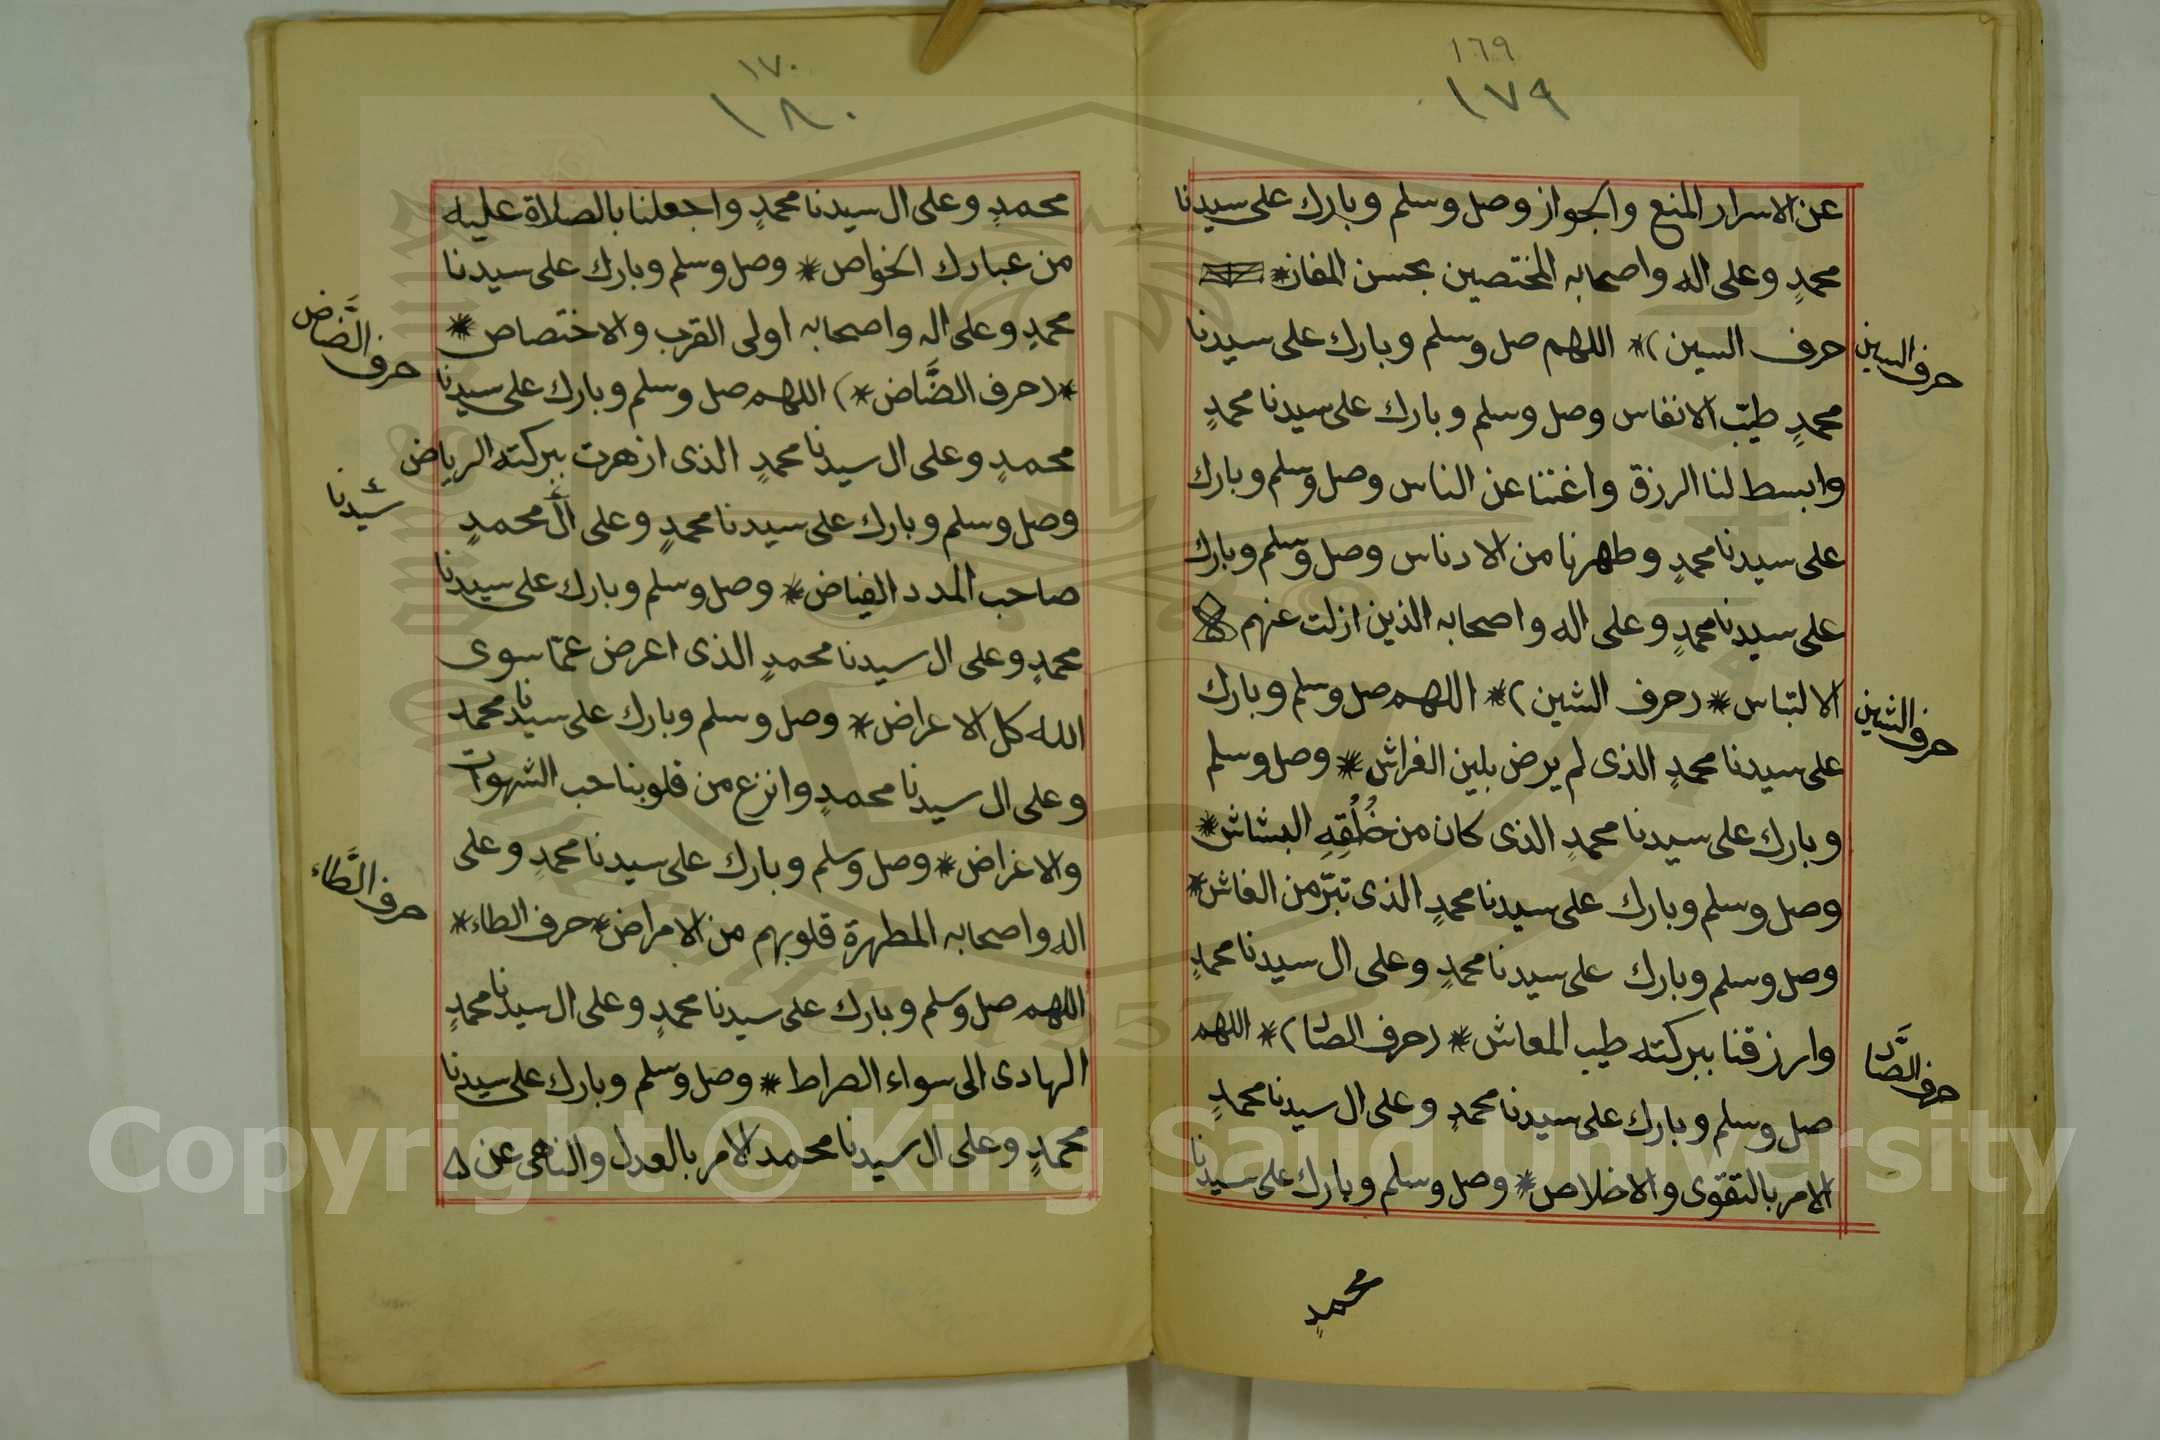 ١٦٩
١٧٩
عن الاسرار المنع والجواز وصل وسلم وبارك على سيدنا
محمدٍ وعلى اله واصحابه المختصين بحسن المفاز*
حرف السين)* اللهم صل وسلم وبارك على سيدنا
محمدٍ طيّب الانفاس وصل وسلم وبارك على سيدنا محمدٍ
وابسط لنا الرزق واغننا عن الناس وصل وسلم وبارك
على سيدنا محمدٍ وطهرنا من الادناس وصل وسلم وبارك
على سيدنا محمدٍ وعلى اله واصحابه الذين ازلت عنهم
الالتباس* (حرف الشين)* اللهم صل وسلم وبارك
على سيدنا محمدٍ الذى لم يرض بلين الفراش* وصل وسلم
وبارك على سيدنا محمدٍ الذى كان من خُلُقِهِ البشاش*
وصل وسلم وبارك على سيدنا محمدٍ الذى تبرّ من الغاش*
وصل وسلم وبارك على سيدنا محمدٍ وعلى ال سيدنا محمدٍ
وارزقنا ببركته طيب المعاش* (حرف الصاد)* اللهم
صل وسلم وبارك على سيدنا محمدٍ وعلى ال سيدنا محمدٍ
الامر بالتقوى والاخلاص* وصل وسلم وبارك على سيدنا
محمدٍ
حرف السين
حرف الشين
حرف الصَّاد
١٧٠
١٨٠
محمدٍ وعلى ال سيدنا محمدٍ واجعلنا بالصلاة عليه
من عبادك الخواص* وصل وسلم وبارك على سيدنا
محمدٍ وعلى اله واصحابه اولى القرب والاختصاص*
*(حرف الضَّاض*) اللهم صل وسلم وبارك على سيدنا
محمدٍ وعلى ال سيدنا محمدٍ الذى ازهرت ببركته الرياض
وصل وسلم وبارك على سيدنا محمدٍ وعلى ال محمدٍ
صاحب المدد الفياض* وصل وسلم وبارك على سيدنا
محمدٍ وعلى ال سيدنا محمدٍ الذى اعرض عمّا سوى
الله كل الاعراض* وصل وسلم وبارك على سيدنا محمد
وعلى ال سيدنا محمدٍ وانزع من قلوبنا حب الشهوات
والاغراض* وصل وسلم وبارك على سيدنا محمدٍ وعلى
اله واصحابه المطهرة قلوبهم من الامراض* حرف الطاء*
اللهم صل وسلم وبارك على سيدنا محمدٍ وعلى ال سيدنا محمدٍ
الهادى الى سواء الصراط* وصل وسلم وبارك على سيدنا
محمدٍ وعلى ال سيدنا محمد الامر بالعدل والناهى عن
حرف الضَّاض
سيدنا
حرف الطَّاء
Copyright © King Saud University